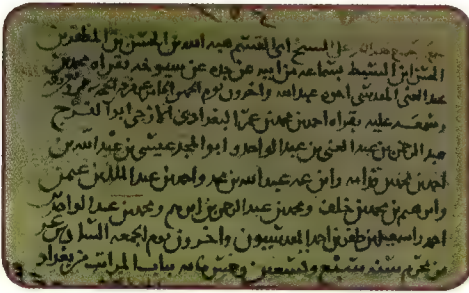 سمع جميع هذا الجزء على الشيخ ابي القسم هبة الله بن الحسن بن المظفر بن
الحسن ابن السبط بسماعه من ابيه عن جده عن شيوخه بقراه محمد بن
عبد الغني المقدسي اخوه عبد الله واخرون يوم الجمعه
وسمعه عليه بقراه احمد بن محمد بن عمر البغدادي الازجي ابو الفرج
عبد الرحمن بن عبد الغني بن عبد الواحد وابو المجد عيسى بن عبد الله بن
احمد بن محمد بن قدامه وابن عمه عبيد الله بن محمد واحمد بن عبد الملك بن عثمن
وابرهيم بن محمد بن خلف ومحمد بن عبد الرحمن بن ابرهيم ومحمد بن عبد الواحد بن
احمد واسمعيل بن ظفر بن احمد المقدسيون واخرون يوم الجمعه السادس عشر
من محرم سنه سبع وتسعين وخمس مايه بباب المراتب من بغداد